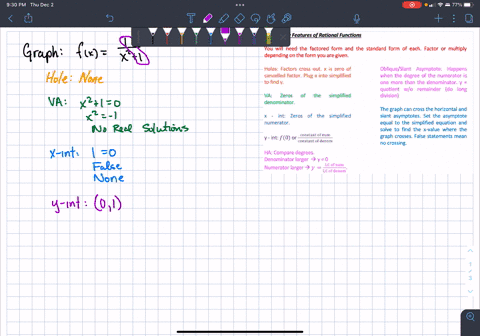 9:30 PM Thu Dec 2
77%
Graph: f(x) = 1/(x²+1)
Hole: None
VA: x²+1=0
x²=-1
No Real Solutions
x-int: 1 = 0
False
None
y-int: (0,1)
Features of Rational Functions
You will need the factored form and the standard form of each. Factor or multiply
depending on the form you are given.
Holes: Factors cross out. x is zero of
cancelled factor. Plug x into simplified
to find y.
VA: Zeros of the simplified
denominator.
x - int: Zeros of the simplified
numerator.
y - int: f(0) or constant of num/constant of denom
HA: Compare degrees.
Denominator larger → y = 0
Numerator larger → y =
Oblique/Slant Asymptote: Happens
when the degree of the numerator is
one more than the denominator. y =
quotient w/o remainder (do long
division)
The graph can cross the horizontal and
slant asymptotes. Set the asymptote
equal to the simplified equation and
solve to find the x-value where the
graph crosses. False statements mean
no crossing.